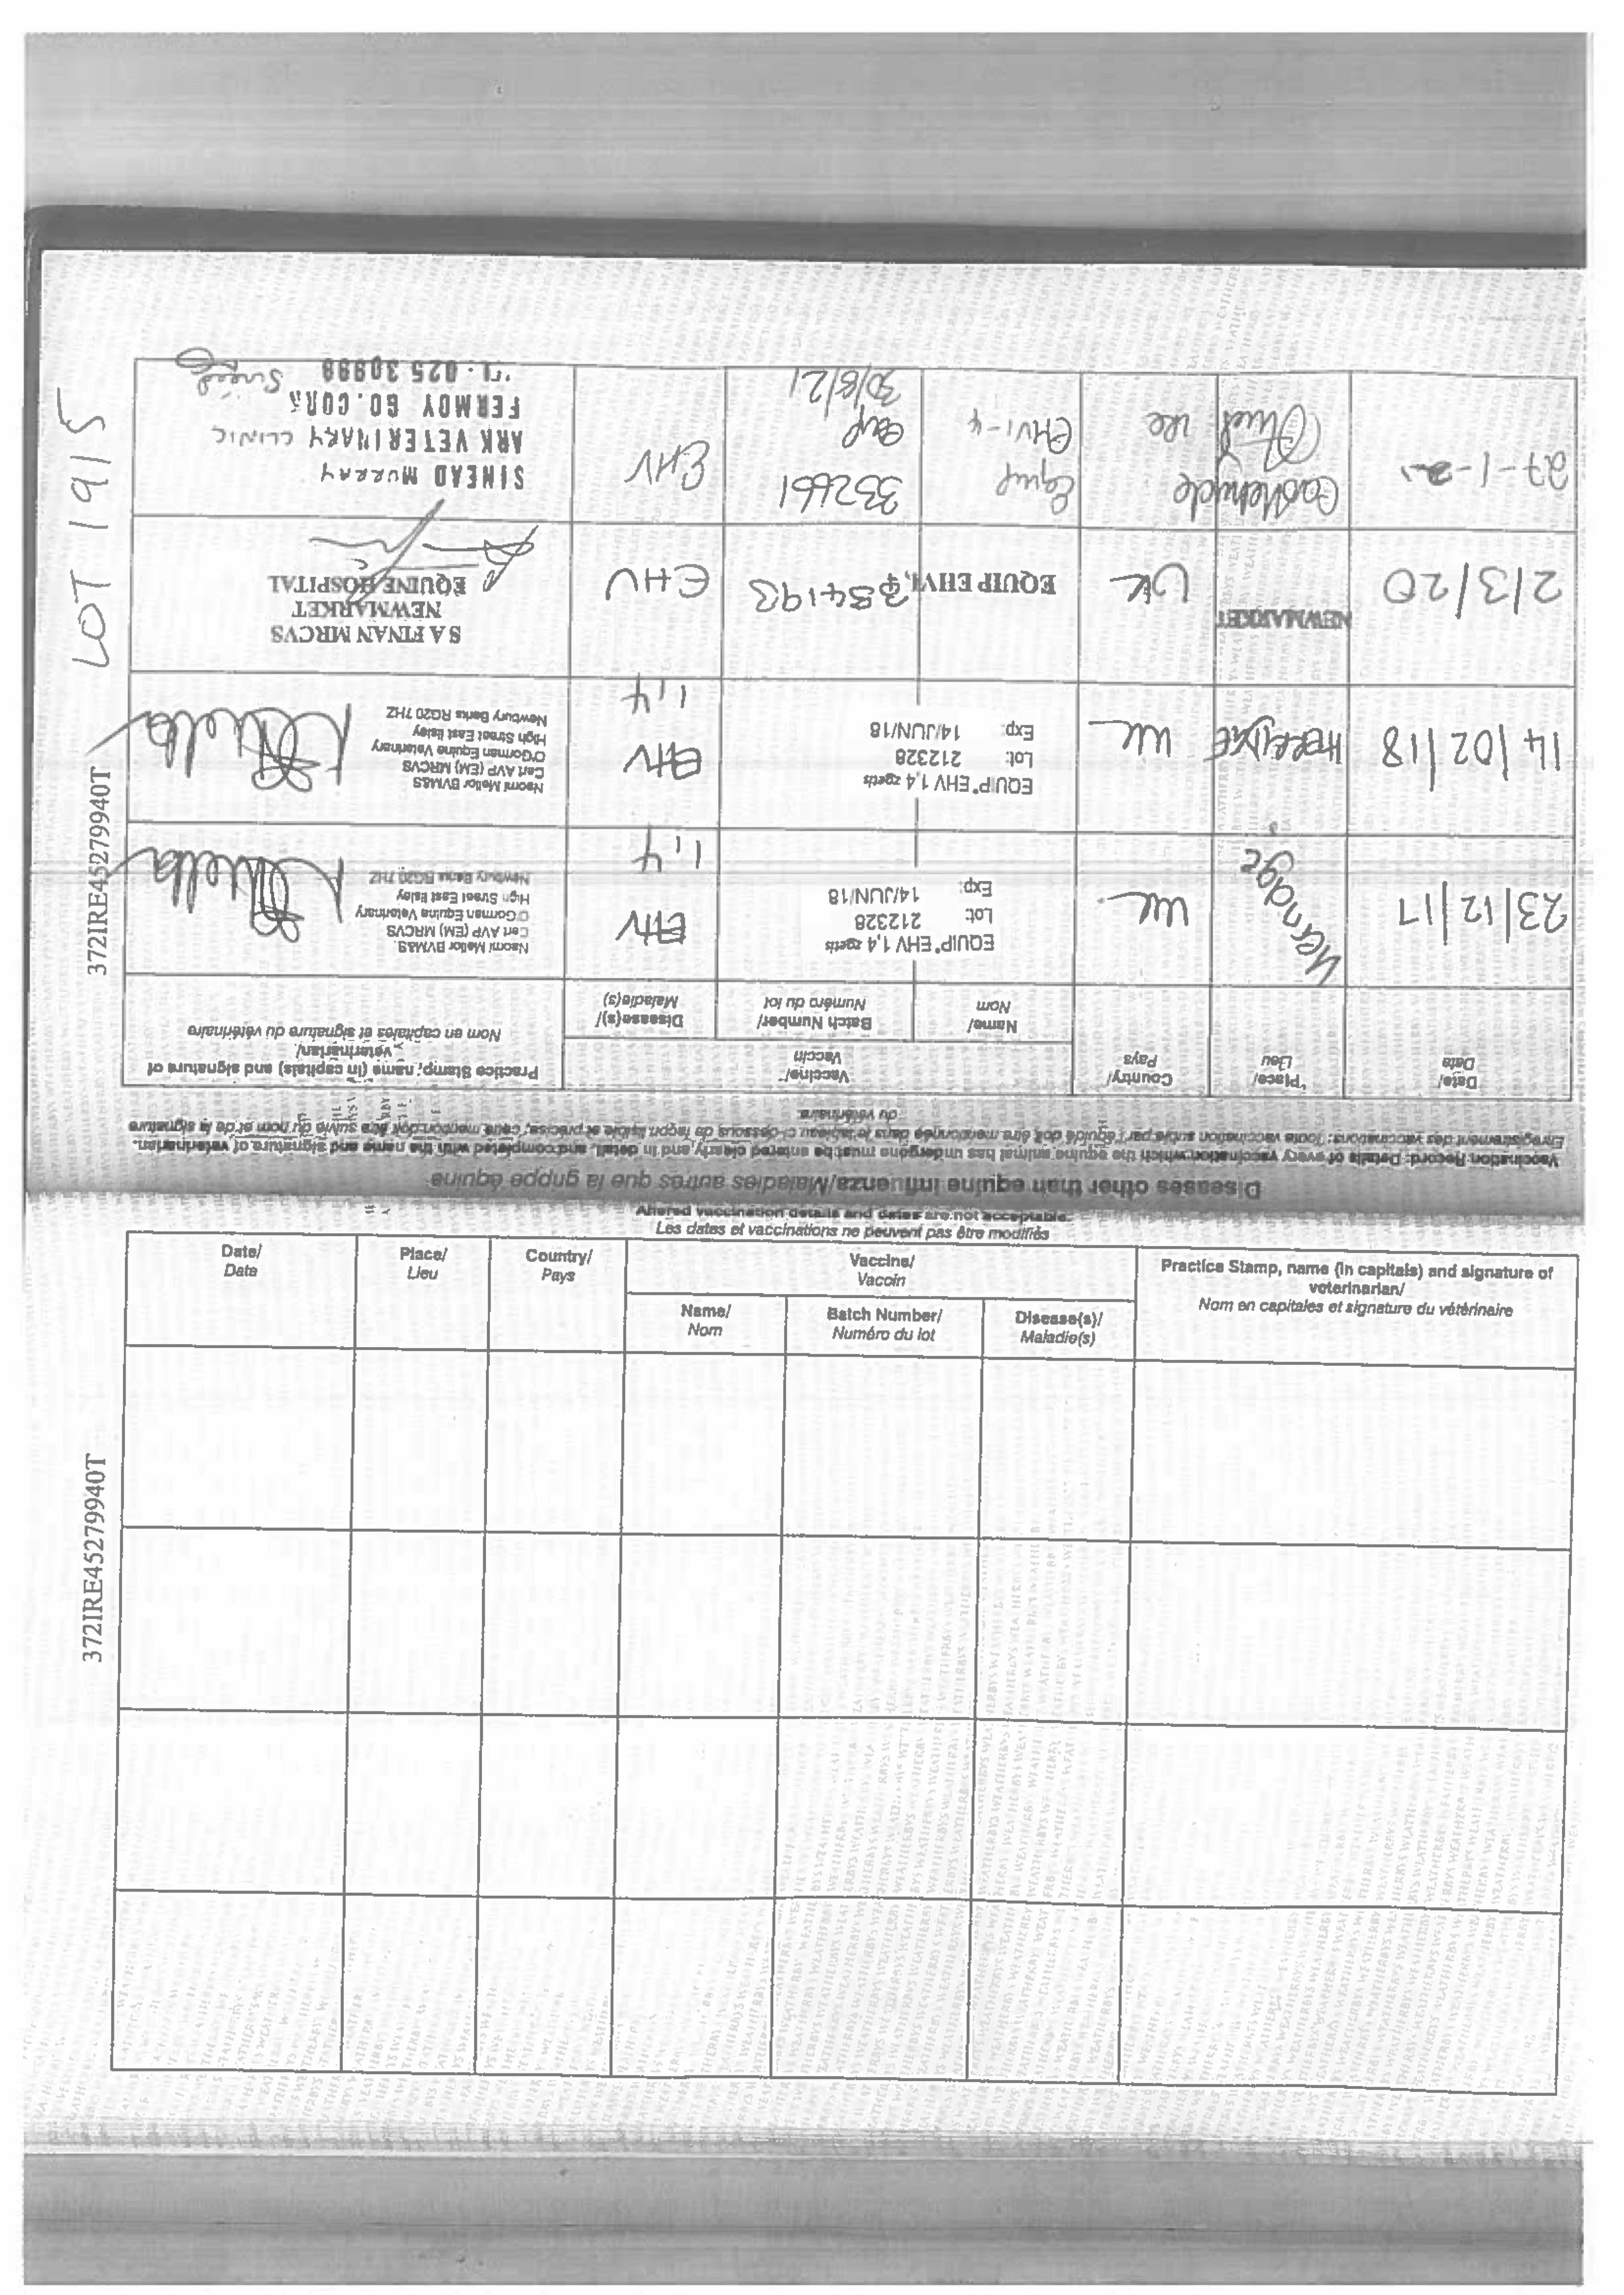 LOT 1915
372IRE452799940T
Diseases other than equine influenza/Maladies autres que la grippe équine
Vaccination Record: Details of every vaccination which the equine animal has undergone must be entered clearly and in detail, and completed with the name and signature of veterinarian.
Enregistrement des vaccinations: Toute vaccination subie par l'équidé doit être mentionnée dans le tableau ci-dessous de façon lisible et précise, cette mention doit être suivie du nom et de la signature
du vétérinaire.
Date/
Date
Place/
Lieu
Country/
Pays
Vaccine/
Vaccin
Name/
Nom
Batch Number/
Numéro du lot
Disease(s)/
Maladie(s)
Practice Stamp, name (in capitals) and signature of
veterinarian/
Nom en capitales et signature du vétérinaire
23/12/17
UK
EQUIP® EHV 1,4 zoetis
Lot: 212328
Exp: 14/JUN/18
EHV
1,4
Naomi Mellor BVM&S.
Cert AVP (EM) MRCVS
O'Gorman Equine Veterinary
High Street East Ilsley
Newbury Berks RG20 7HZ
14/02/18
UK
EQUIP® EHV 1,4 zoetis
Lot: 212328
Exp: 14/JUN/18
EHV
1,4
Naomi Mellor BVM&S
Cert AVP (EM) MRCVS
O'Gorman Equine Veterinary
High Street East Ilsley
Newbury Berks RG20 7HZ
2/3/20
NEWMARKET
UK
EQUIP EHV1,4
EHV
S A FINAN MRCVS
NEWMARKET
EQUINE HOSPITAL
27-1-21
Castlehyde
Stud
Equip
EHV1-4
332661
Exp
30/8/21
EHV
SINEAD MURRAY
ARK VETERINARY CLINIC
FERMOY CO. CORK
TEL. 025 30998
Altered vaccination details and dates are not acceptable.
Les dates et vaccinations ne peuvent pas être modifiés
Date/
Date
Place/
Lieu
Country/
Pays
Vaccine/
Vaccin
Name/
Nom
Batch Number/
Numéro du lot
Disease(s)/
Maladie(s)
Practice Stamp, name (in capitals) and signature of
veterinarian/
Nom en capitales et signature du vétérinaire
372IRE452799940T